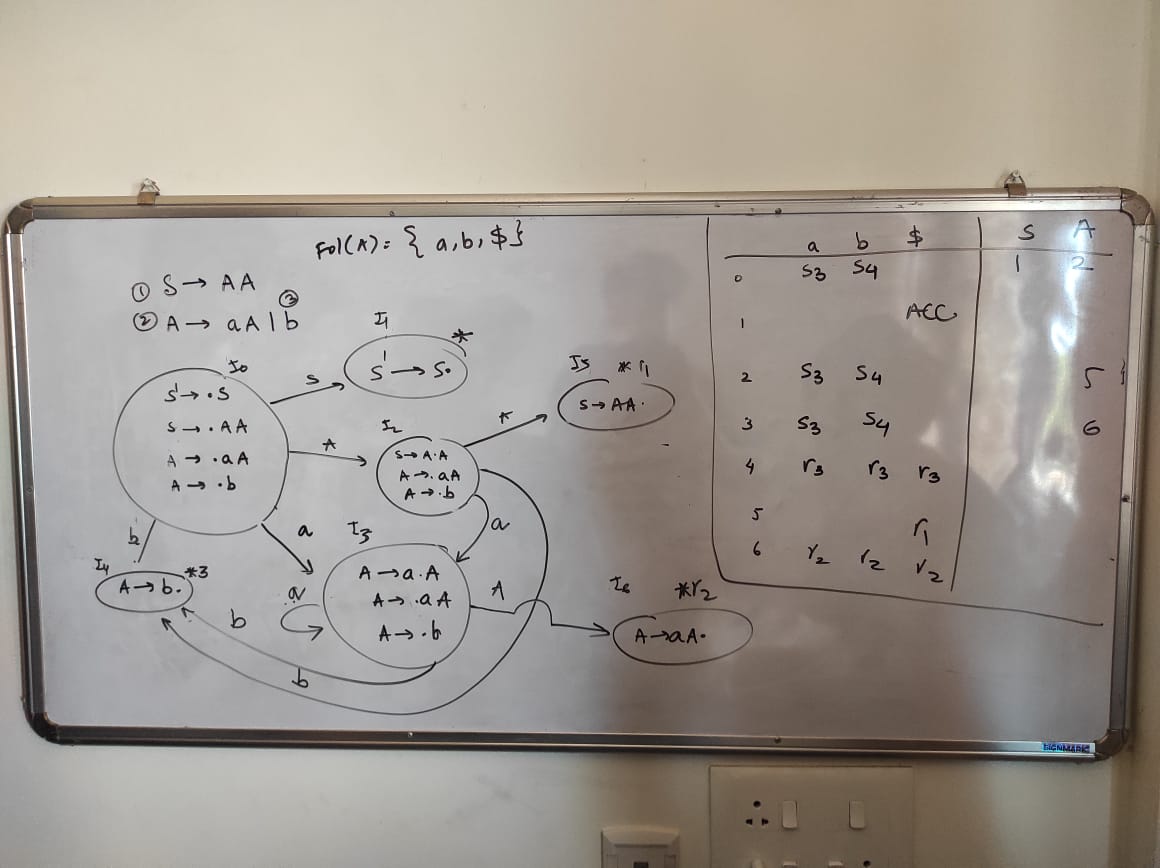 Fol(A) = { a, b, $ }
① S → AA
② A → aA | b ③
I0
S' → .S
S → .AA
A → .aA
A → .b
S
I1 *
S' → S.
A
I2
S → A.A
A → .aA
A → .b
A
I5 * r1
S → AA.
a
a
I3
A → a.A
A → .aA
A → .b
a
b
I4 *3
A → b.
b
b
A
I6 *r2
A → aA.
a b $ S A
0 S3 S4 1 2
1 ACC
2 S3 S4 5
3 S3 S4 6
4 r3 r3 r3
5 r1
6 r2 r2 r2
SIGNMARK